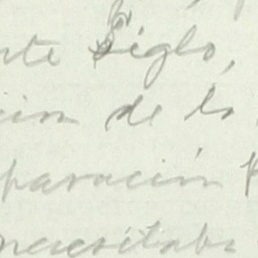 nte Siglo,
cion de lo
paración
necesitaba